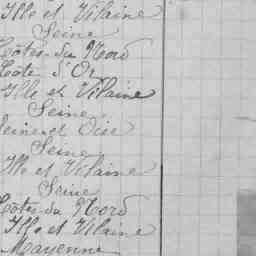 Ille et Vilaine
Seine
Côtes du Nord
Côte d'Or
Ille et Vilaine
Seine
Seine et Oise
Seine
Ille et Vilaine
Seine
Côtes du Nord
Ille et Vilaine
Mayenne